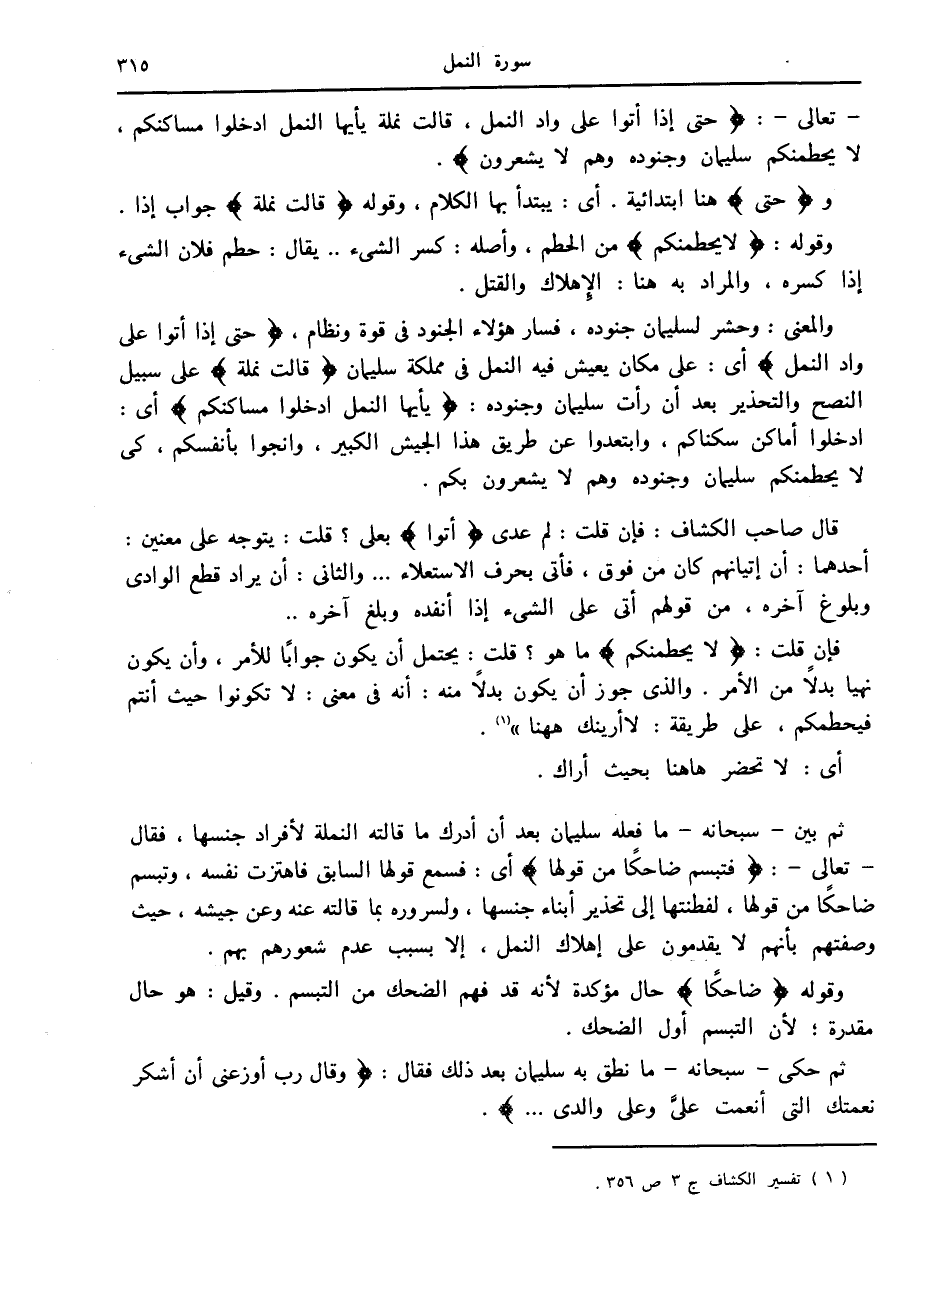 سورة النمل ٣١٥
– تعالى – : ﴿ حتى إذا أتوا على واد النمل ، قالت نملة يأيها النمل ادخلوا مساكنكم ،
لا يحطمنكم سليمان وجنوده وهم لا يشعرون ﴾ .
و ﴿ حتى ﴾ هنا ابتدائية . أى : يبتدأ بها الكلام ، وقوله ﴿ قالت نملة ﴾ جواب إذا .
وقوله : ﴿ لايحطمنكم ﴾ من الحطم ، وأصله : كسر الشىء .. يقال : حطم فلان الشىء
إذا كسره ، والمراد به هنا : الإِهلاك والقتل .
والمعنى : وحشر لسليمان جنوده ، فسار هؤلاء الجنود فى قوة ونظام ، ﴿ حتى إذا أتوا على
واد النمل ﴾ أى : على مكان يعيش فيه النمل فى مملكة سليمان ﴿ قالت نملة ﴾ على سبيل
النصح والتحذير بعد أن رأت سليمان وجنوده : ﴿ يأيها النمل ادخلوا مساكنكم ﴾ أى :
ادخلوا أماكن سكناكم ، وابتعدوا عن طريق هذا الجيش الكبير ، وانجوا بأنفسكم ، كى
لا يحطمنكم سليمان وجنوده وهم لا يشعرون بكم .
قال صاحب الكشاف : فإن قلت : لم عدى ﴿ أتوا ﴾ بعلى ؟ قلت : يتوجه على معنين :
أحدهما : أن إتيانهم كان من فوق ، فأتى بحرف الاستعلاء ... والثانى : أن يراد قطع الوادى
وبلوغ آخره ، من قولهم أتى على الشىء إذا أنفده وبلغ آخره ..
فإن قلت : ﴿ لا يحطمنكم ﴾ ما هو ؟ قلت : يحتمل أن يكون جوابًا للأمر ، وأن يكون
نهيا بدلاً من الأمر . والذى جوز أن يكون بدلاً منه : أنه فى معنى : لا تكونوا حيث أنتم
فيحطمكم ، على طريقة : لاأرينك ههنا »(١) .
أى : لا تحضر هاهنا بحيث أراك .
ثم بين – سبحانه – ما فعله سليمان بعد أن أدرك ما قالته النملة لأفراد جنسها ، فقال
– تعالى – : ﴿ فتبسم ضاحكًا من قولها ﴾ أى : فسمع قولها السابق فاهتزت نفسه ، وتبسم
ضاحكًا من قولها ، لفطنتها إلى تحذير أبناء جنسها ، ولسروره بما قالته عنه وعن جيشه ، حيث
وصفتهم بأنهم لا يقدمون على إهلاك النمل ، إلا بسبب عدم شعورهم بهم .
وقوله ﴿ ضاحكًا ﴾ حال مؤكدة لأنه قد فهم الضحك من التبسم . وقيل : هو حال
مقدرة ؛ لأن التبسم أول الضحك .
ثم حكى – سبحانه – ما نطق به سليمان بعد ذلك فقال : ﴿ وقال رب أوزعنى أن أشكر
نعمتك التى أنعمت علىَّ وعلى والدى ... ﴾ .
( ١ ) تفسير الكشاف ج ٣ ص ٣٥٦ .